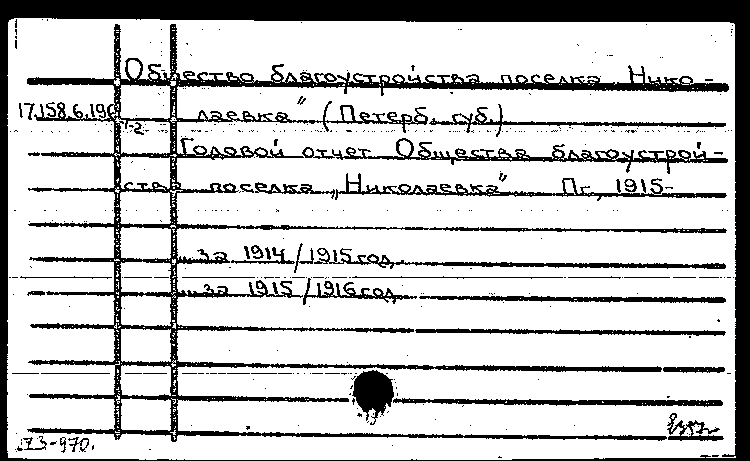 Общество благоустройства поселка Нико-
17.158.6.196
1-2
лаевка" (Петерб. губ.)
Годовой отчет Общества благоустрой-
ства поселка „Николаевка". Пг., 1915-
... за 1914/1915 год.
... за 1915/1916 год.
73-970.